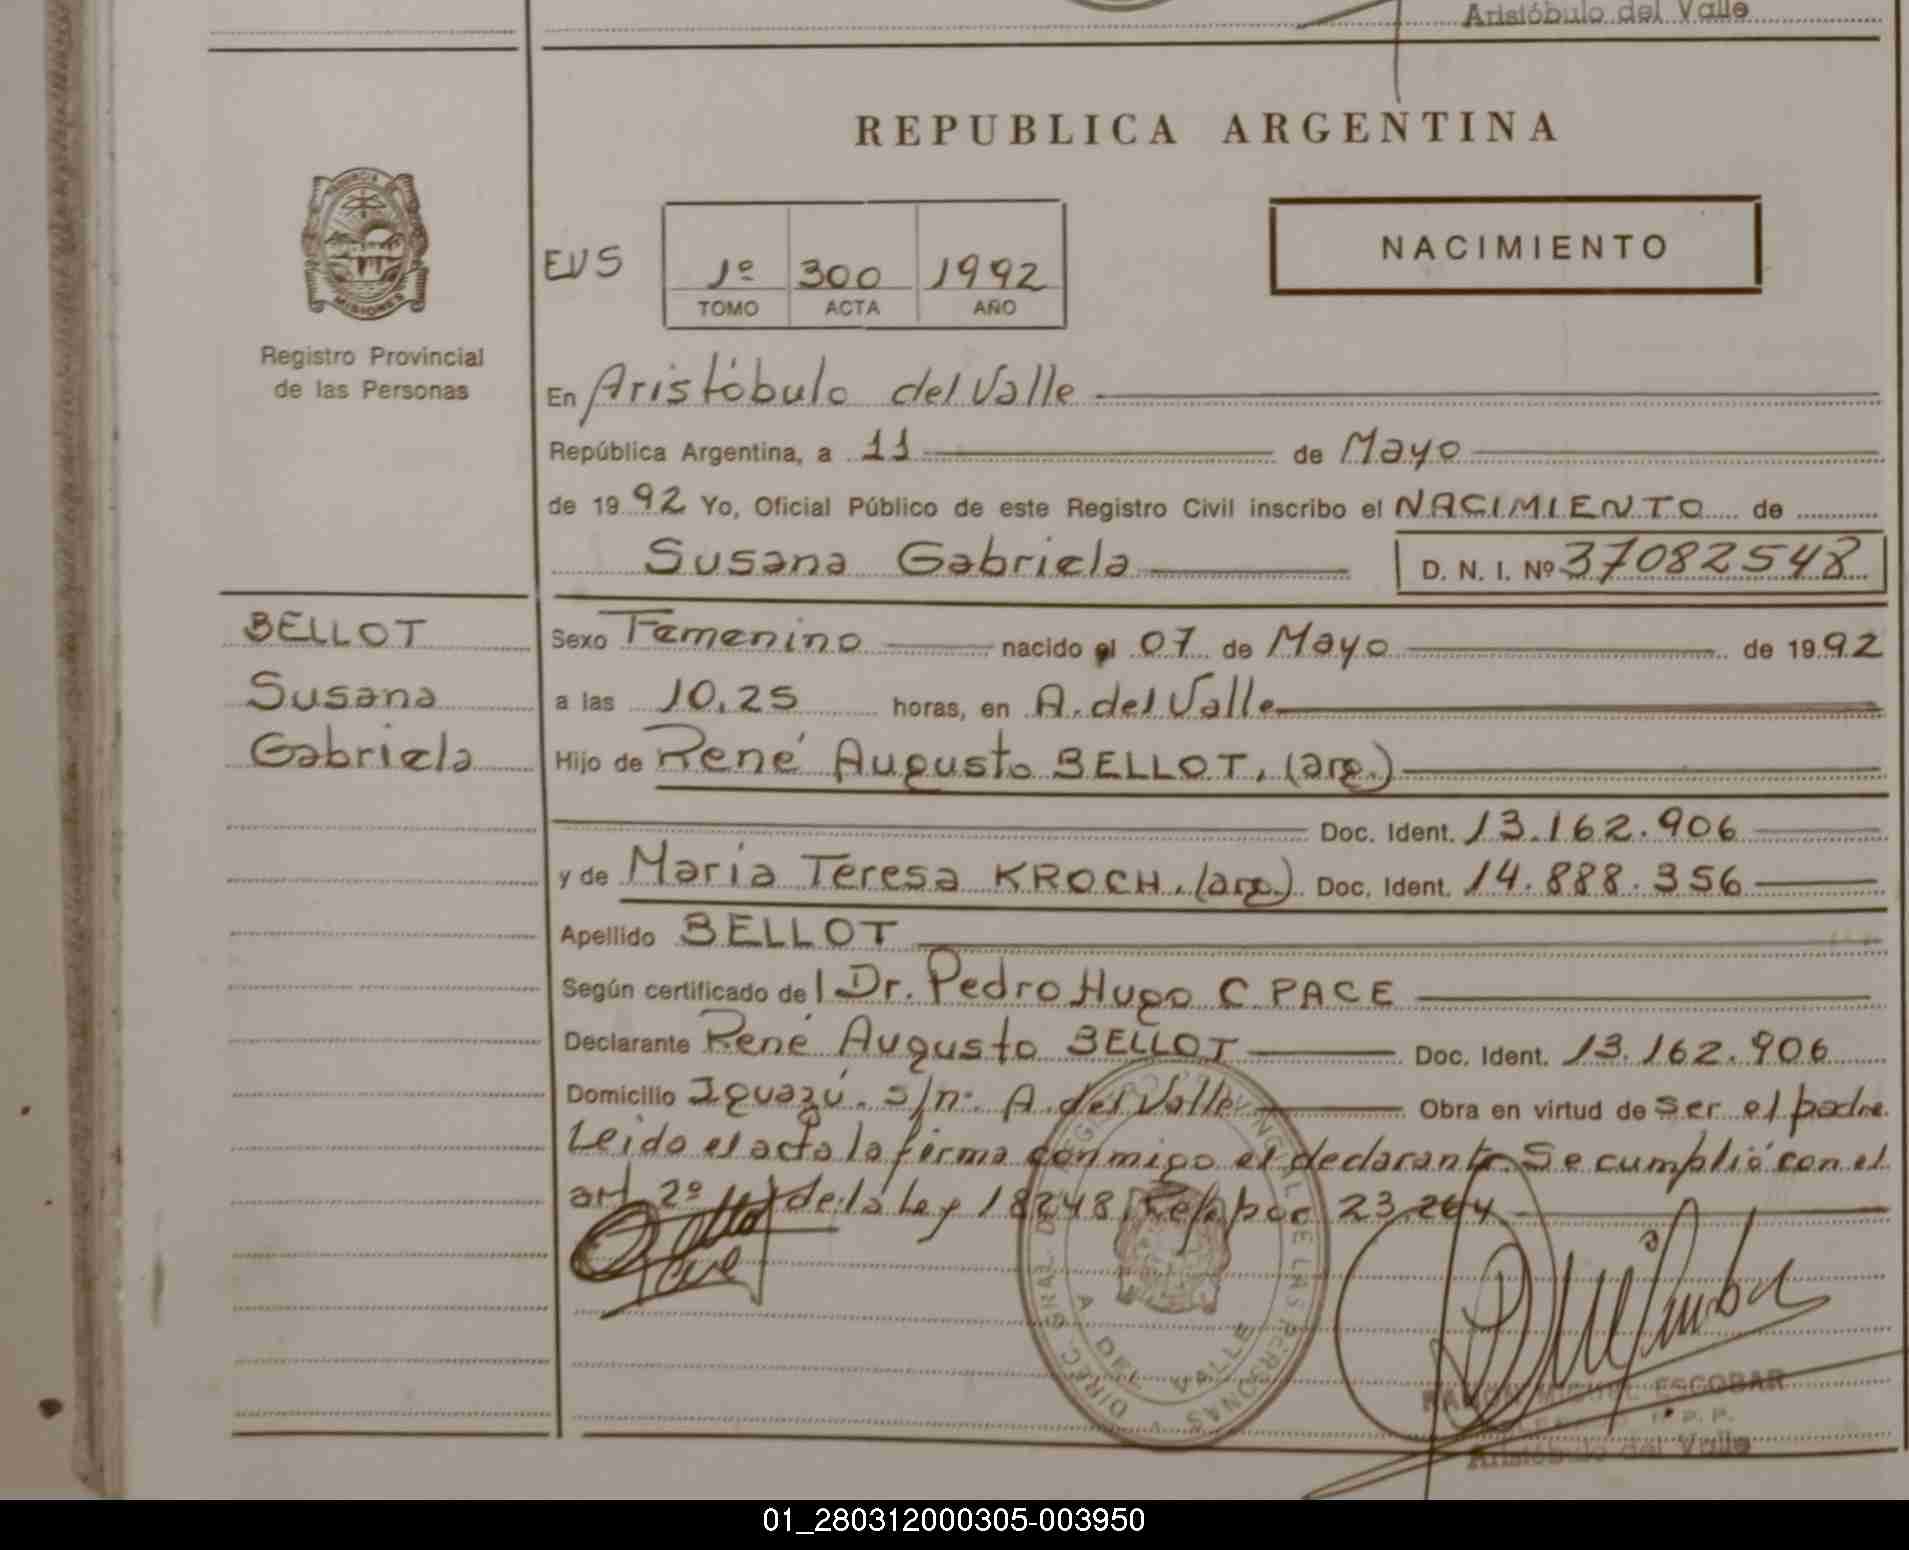 Aristóbulo del Valle
REPUBLICA ARGENTINA
PROVINCIA DE
MISIONES
Registro Provincial
de las Personas
EVS
1º 300 1992
TOMO ACTA AÑO
NACIMIENTO
En Aristóbulo del Valle
República Argentina, a 11 de Mayo
de 1992 Yo, Oficial Público de este Registro Civil inscribo el NACIMIENTO de
Susana Gabriela D. N. I. Nº 37082548
BELLOT
Susana
Gabriela
Sexo Femenino nacido el 07 de Mayo de 1992
a las 10,25 horas, en A. del Valle
Hijo de René Augusto BELLOT, (arg.)
Doc. Ident. 13.162.906
y de María Teresa KROCH, (arg.) Doc. Ident. 14.888.356
Apellido BELLOT
Según certificado del Dr. Pedro Hugo C PACE
Declarante René Augusto BELLOT Doc. Ident. 13.162.906
Domicilio Iguazú. s/n. A. del Valle Obra en virtud de ser el padre.
Leido el acta la firma conmigo el declarante. Se cumplió con el
art 2º de la Ley 18248, Ref. por 23.264
DIREC. GRAL. DEL REGISTRO PROVINCIAL DE LAS PERSONAS
A. DEL VALLE
RAMON MIGUEL ESCOBAR
R. P. P.
Aristóbulo del Valle
01_280312000305-003950